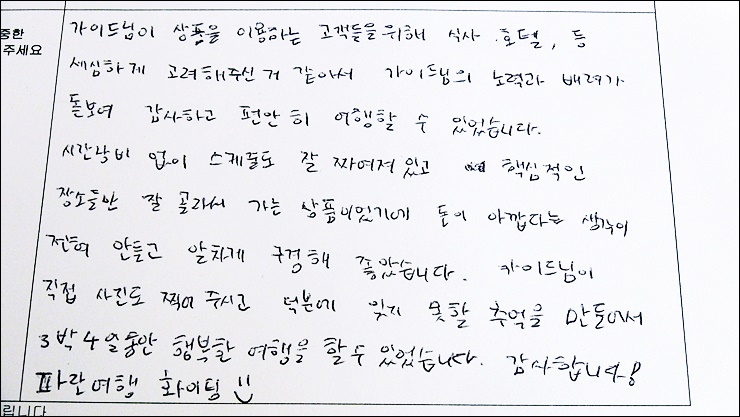 중한
주세요
가이드님이 상품을 이용하는 고객들을 위해 식사, 호텔, 등
세심하게 고려해주신 거 같아서 가이드님의 노력과 배려가
돋보여 감사하고 편안히 여행할 수 있었습니다.
시간낭비 없이 스케줄도 잘 짜여져 있고 핵심적인
장소들만 잘 골라서 가는 상품이었기에 돈이 아깝다는 생각이
전혀 안들고 알차게 구경해 좋았습니다. 가이드님이
직접 사진도 찍어 주시고 덕분에 잊지 못할 추억을 만들어서
3박 4일동안 행복한 여행을 할 수 있었습니다. 감사합니다!
파란여행 화이팅 !!
립니다